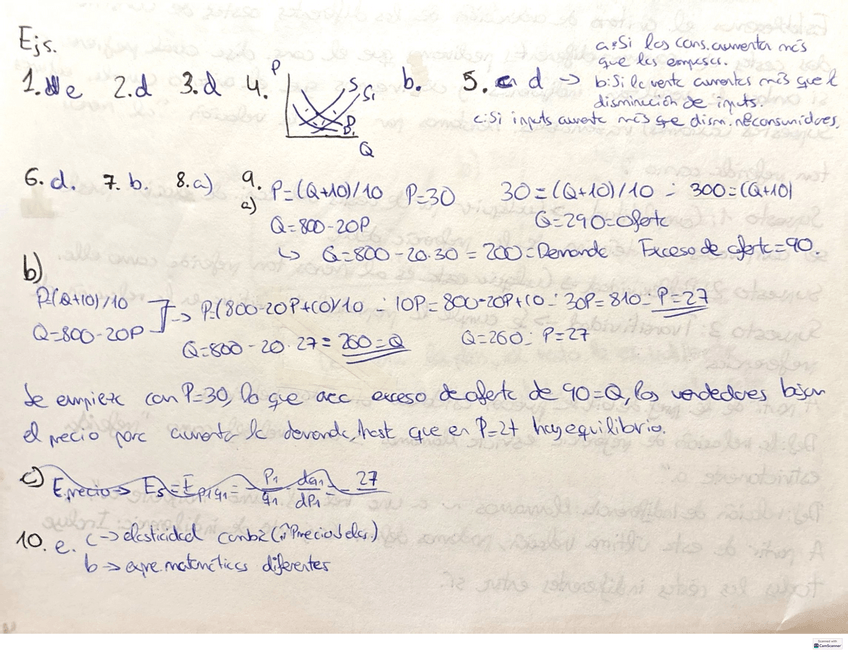 Ejs.
1. e 2.d 3.d 4. P S S₁ D Q b. 5. d →
a: Si los cons. aumenta más
que las empresas.
b: Si la renta aumentas más que la
disminución de inputs.
c: Si inputs aumenta más que dism. nºconsumidores.
6. d. 7. b. 8. a) 9.
a) P=(Q+10)/10 P=30 30=(Q+10)/10 ∴ 300=(Q+10)
Q=800-20P Q=290=Oferta
↳ Q=800-20·30=200=Demanda Exceso de oferta=90.
b)
P=(Q+10)/10
Q=800-20P
→ P=(800-20P+10)/10 ∴ 10P=800-20P+10 ∴ 30P=810 ∴ P=27
Q=800-20·27=260=Q Q=260 ∴ P=27
Se empieza con P=30, lo que exceso de oferta de 90=Q, los vendedores bajan
el precio para aumentar la demanda, hasta que en P=27 hay equilibrio.
c) E.precio → Es=Ep₁q₁= P₁/q₁ dq₁/dP₁ = 27
10. e. c → elasticidad cambia
b → expre. matemáticas diferentes
Scanned with
CamScanner